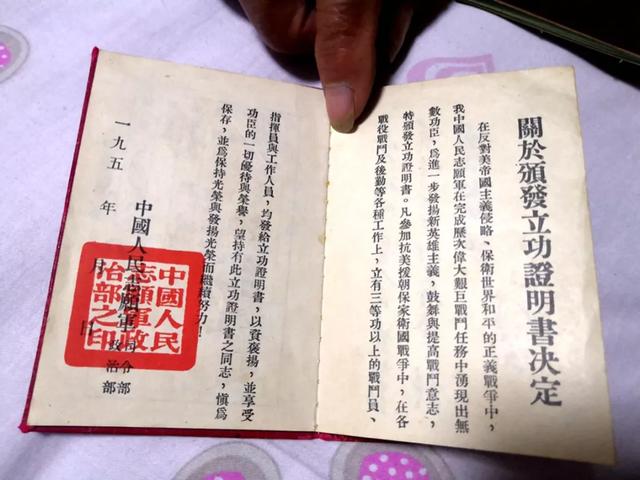 關於頒發立功證明書決定
在反對美帝國主義侵略、保衛世界和平的正義戰爭中，
我中國人民志願軍在完成歷次偉大艱巨戰鬥任務中湧現出無
數功臣，爲進一步發揚新英雄主義，鼓舞與提高戰鬥意志，
特頒發立功證明書。凡參加抗美援朝保家衛國戰爭中，在各
戰役戰鬥及後勤等各種工作上，立有三等功以上的戰鬥員、
指揮員與工作人員，均發給立功證明書，以資褒揚，並享受
功臣的一切優待與榮譽，望持有此立功證明書之同志，愼爲
保存，並爲保持光榮與發揚光榮而繼續努力！
中國人民志願軍
司令部
政治部
一九五 年 月 日
中國人民
志願軍政
治部之印